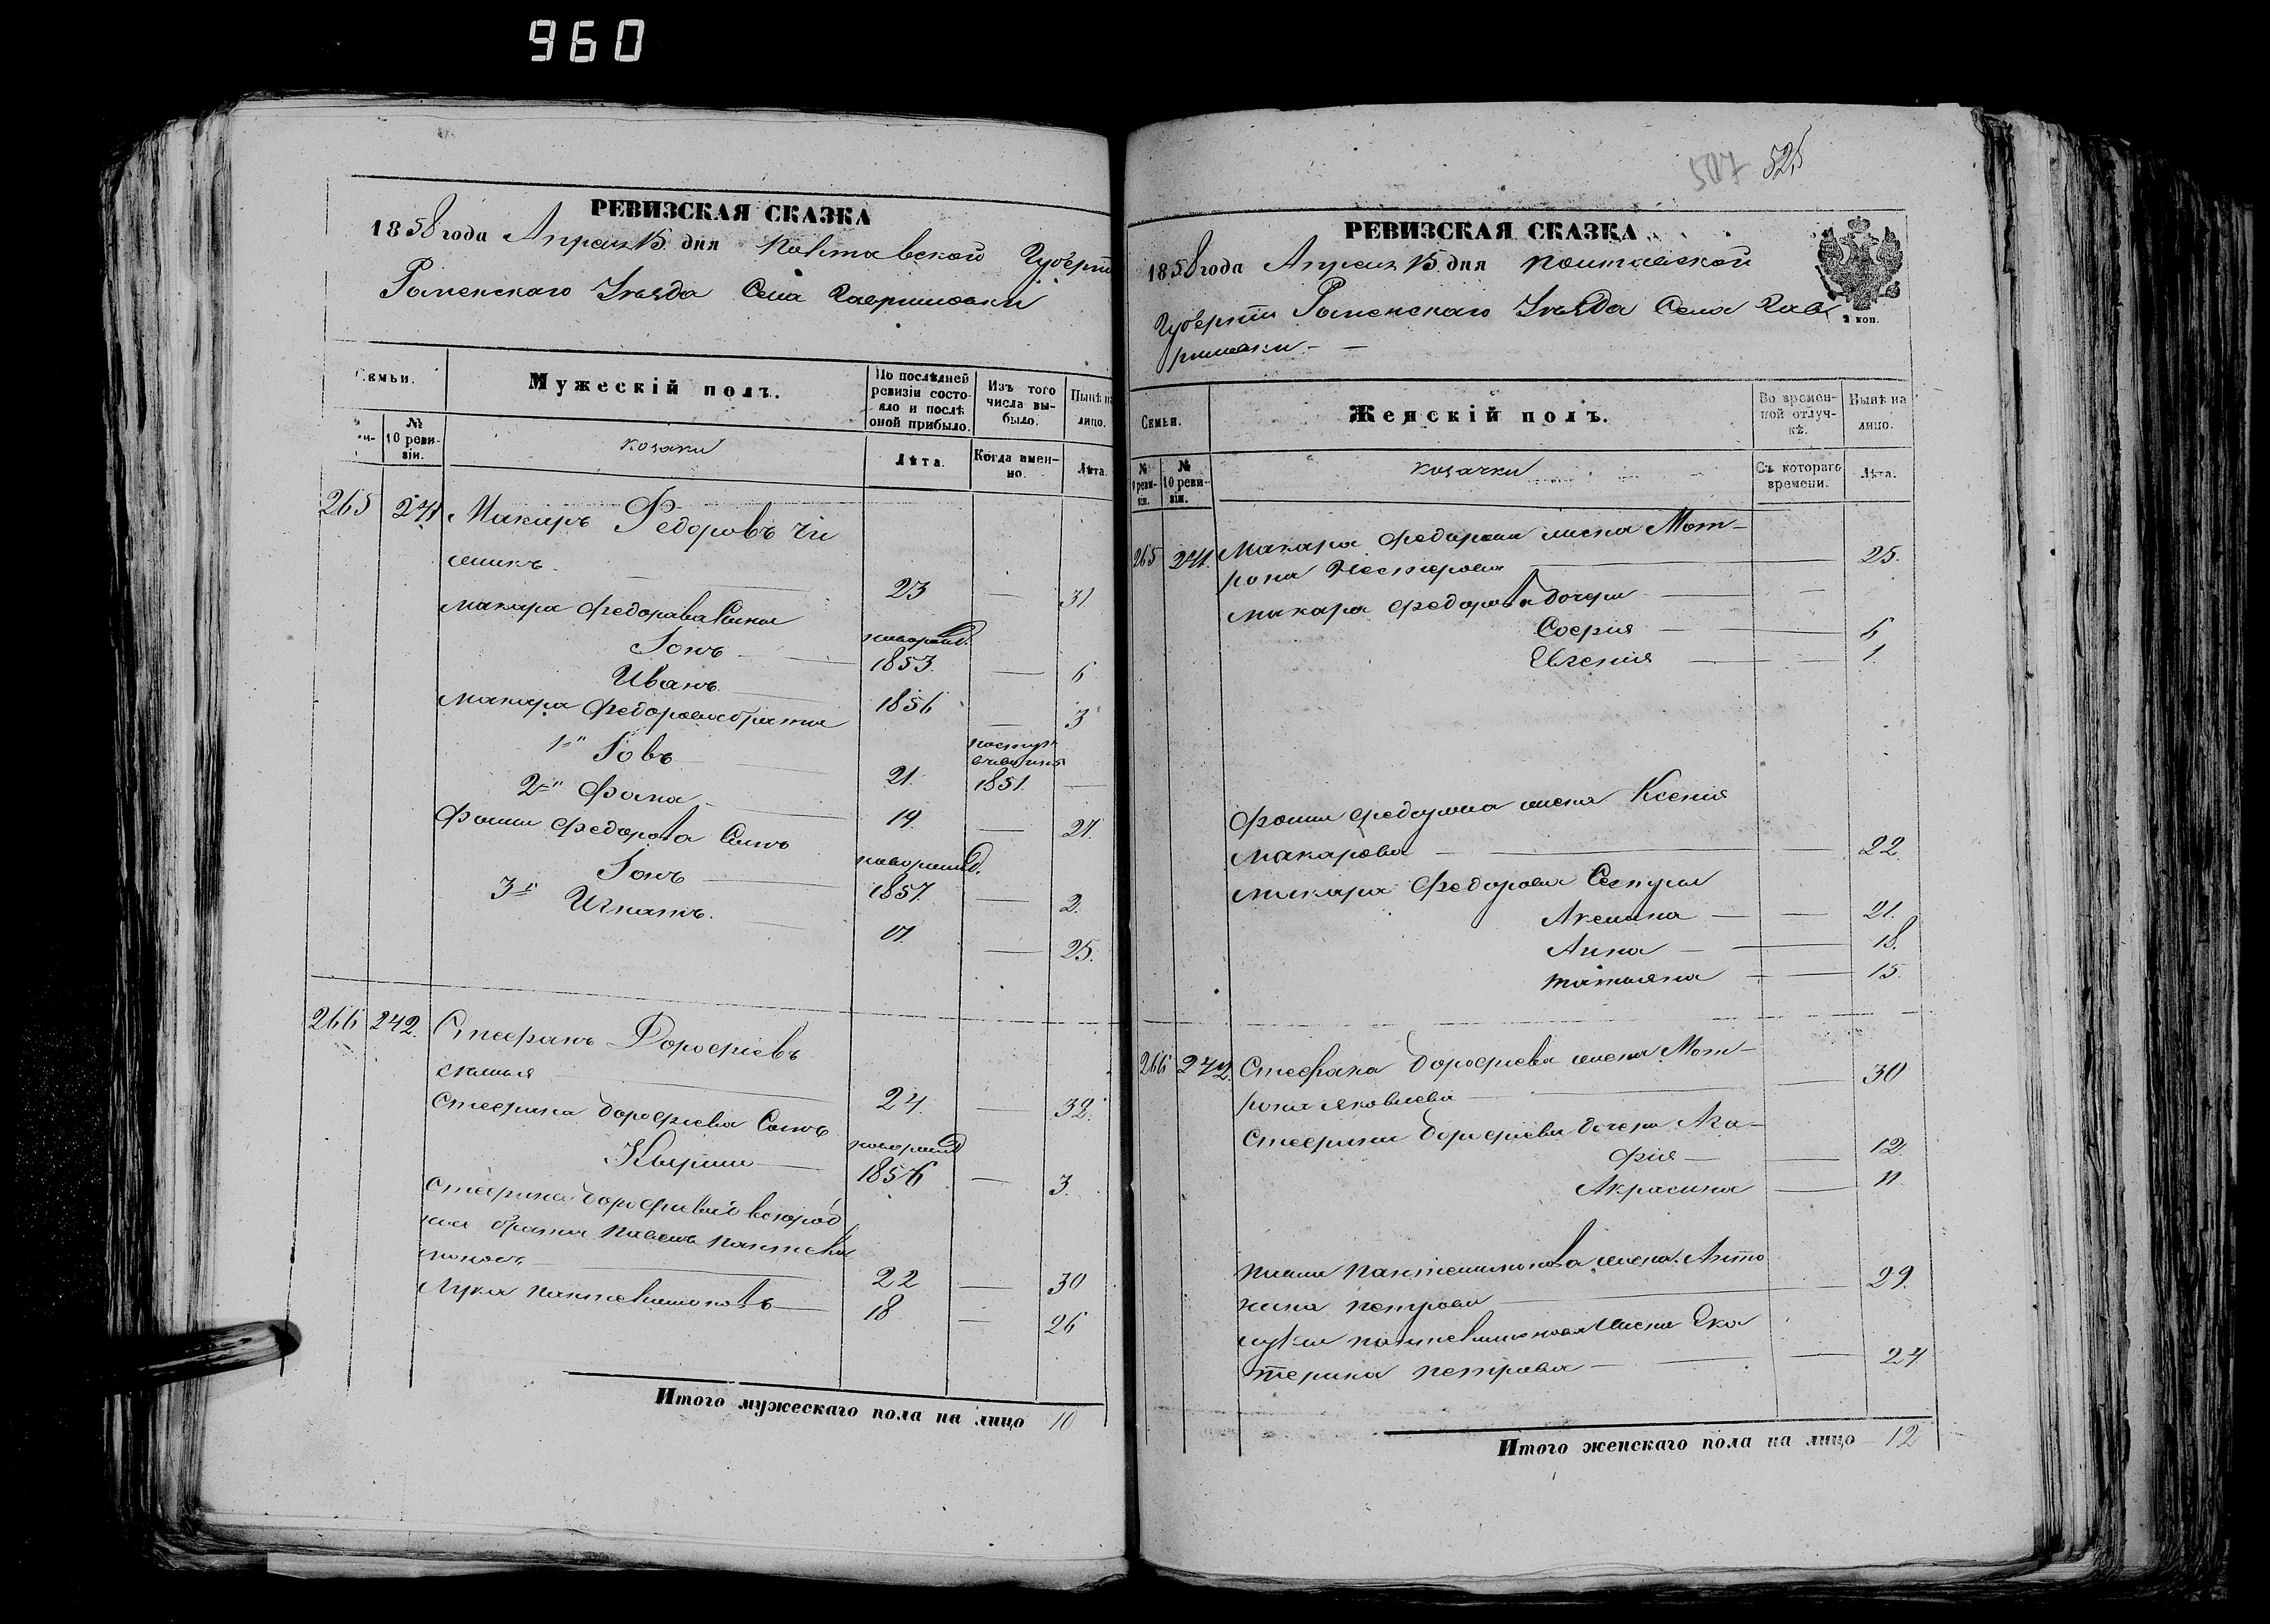 960
РЕВИЗСКАЯ СКАЗКА
1858 года Апреля 15 дня Полтавской Губерніи
Роменскаго Уѣзда Села Гавришовки
Семьи.
Мужескій полъ.
По послѣдней ревизіи состояло и послѣ оной прибыло.
Изъ того числа выбыло.
Нынѣ на лицо.
№ 10 ревизіи.
козаки
Лѣта.
Когда именно.
Лѣта.
265 241 Макаръ Федоровъ
23 — 31
Макара Федорова Сыны
новорожд.
Іонъ — 1853 — 6
Иванъ 1856 — 3
Макара Федорова братья
1й Іовъ 21. 1851. —
2й Фома 19. — 27.
Фомы Федорова Сынъ
новорожд.
Іонъ 1857. — 2.
3й Игнатъ. 17. — 25.
266 242. Стефанъ Дорофіевъ
24. — 32.
Стефана Дорофіева Сынъ
новорожд
1856 — 3.
Стефана Дорофіева двоюрод
ные братья Павелъ Пантелеи
моновъ 22 — 30
Лука Пантелеимоновъ — 18 — 26
Итого мужескаго пола на лицо 10
507 525
РЕВИЗСКАЯ СКАЗКА
1858 года Апреля 15 дня Полтавской
Губерніи Роменскаго Уѣзда Села Гав
ришовки —
2 коп.
Семьи.
Женскій полъ.
Во временной отлучкѣ.
Нынѣ на лицо.
№ 9 ревизіи.
№ 10 ревизіи.
козачки
Съ котораго времени.
Лѣта.
265 241. Макара Федорова жена Мот-
рона Нестерова — 25.
Макара Федорова дочери —
Софія — 6
Евгенія — 1.
Фомы Федорова жена Ксенія
Макарова — 22.
Макара Федорова Сестры
Аксинія — 21.
Анна — 18.
Татьяна — 15.
266 242. Стефана Дорофіева жена Мот-
рона Яковлева — 30
Стефана Дорофіева дочери Ага-
фія — 12.
11
Павла Пантелимонова жена Анто
нина Петрова — 29.
Луки Пантелимонова жена Ека
терина Петрова — 24.
Итого женскаго пола на лицо 12